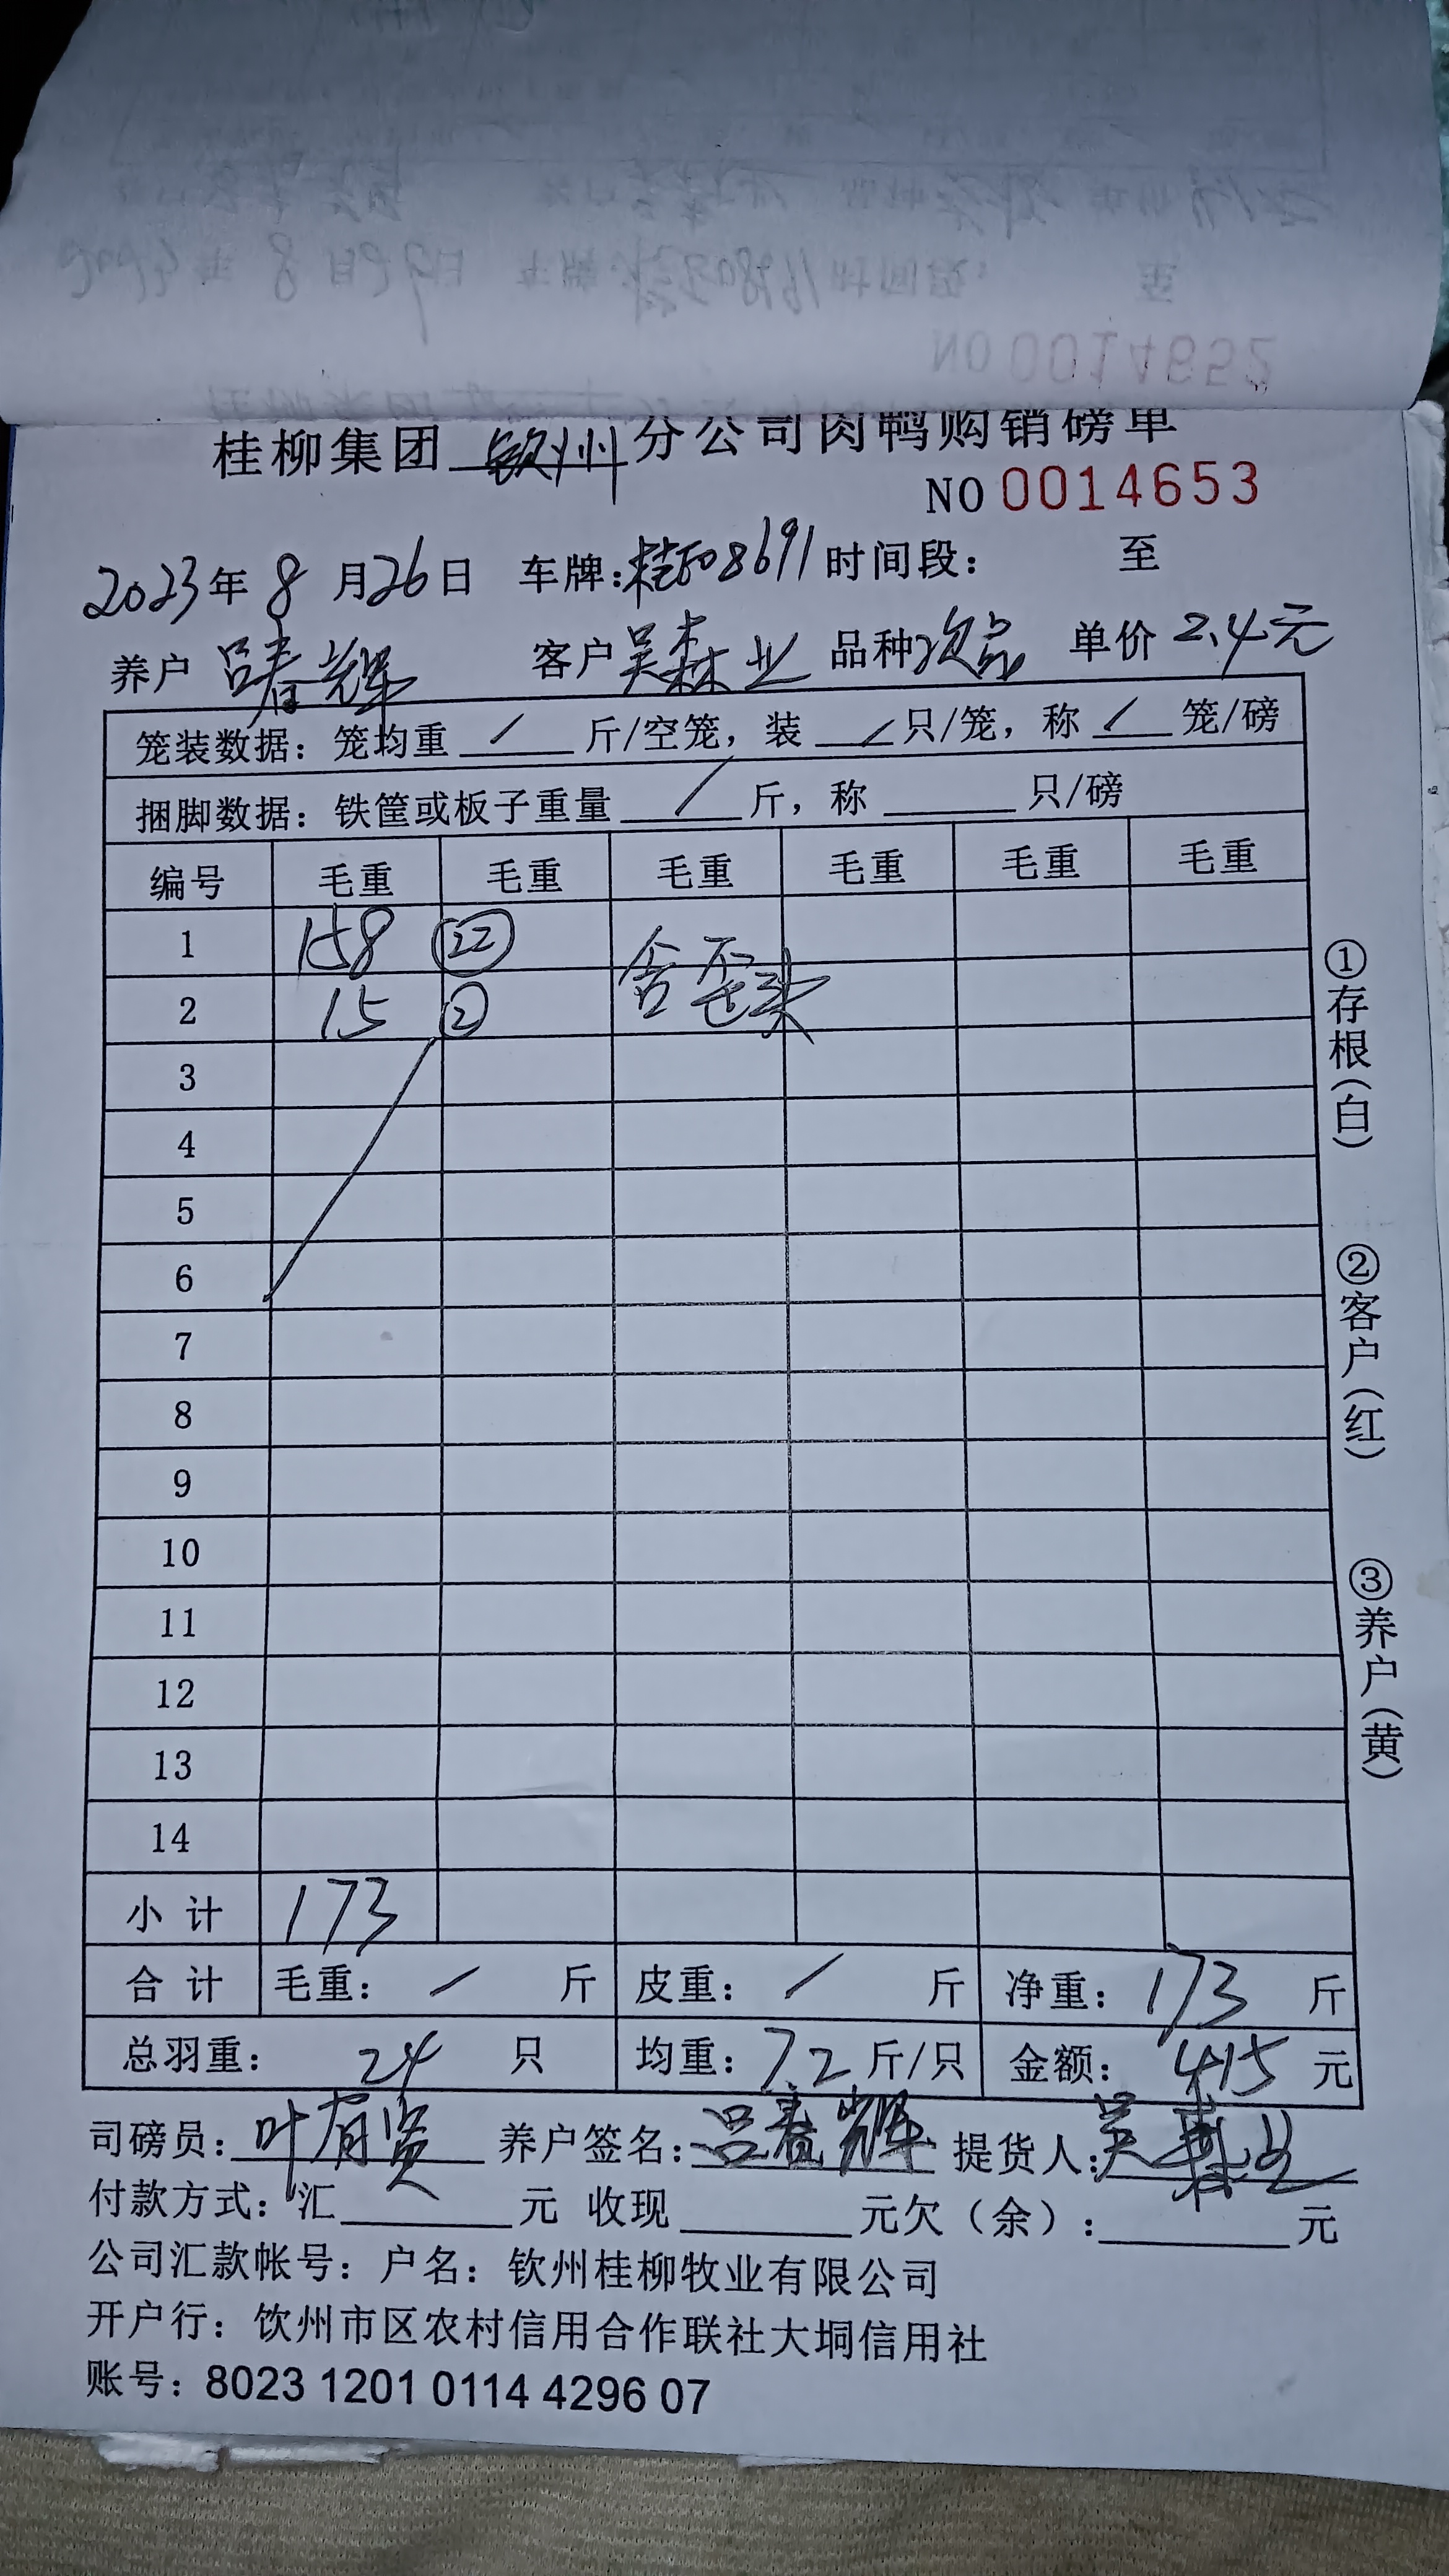 桂柳集团 钦州 分公司肉鸭购销磅单
NO 0014653
2023年 8 月26日 车牌:桂E08691 时间段: 至
养户 吕春辉 客户 吴森业 品种 次品 单价 2.4元
笼装数据: 笼均重 / 斤/空笼, 装 / 只/笼, 称 / 笼/磅
捆脚数据: 铁筐或板子重量 / 斤, 称 只/磅
编号 毛重 毛重 毛重 毛重 毛重 毛重
1 158 ㉒ 含歪头
2 15 ②
3
4
5
6
7
8
9
10
11
12
13
14
小计 173
合计 毛重: / 斤 皮重: / 斤 净重: 173 斤
总羽重: 24 只 均重: 7.2 斤/只 金额: 415 元
司磅员: 叶有贤 养户签名: 吕春辉 提货人: 吴森业
付款方式: 汇 元 收现 元欠(余): 元
公司汇款帐号: 户名: 钦州桂柳牧业有限公司
开户行: 钦州市区农村信用合作联社大垌信用社
账号: 8023 1201 0114 4296 07
①存根(白)
②客户(红)
③养户(黄)